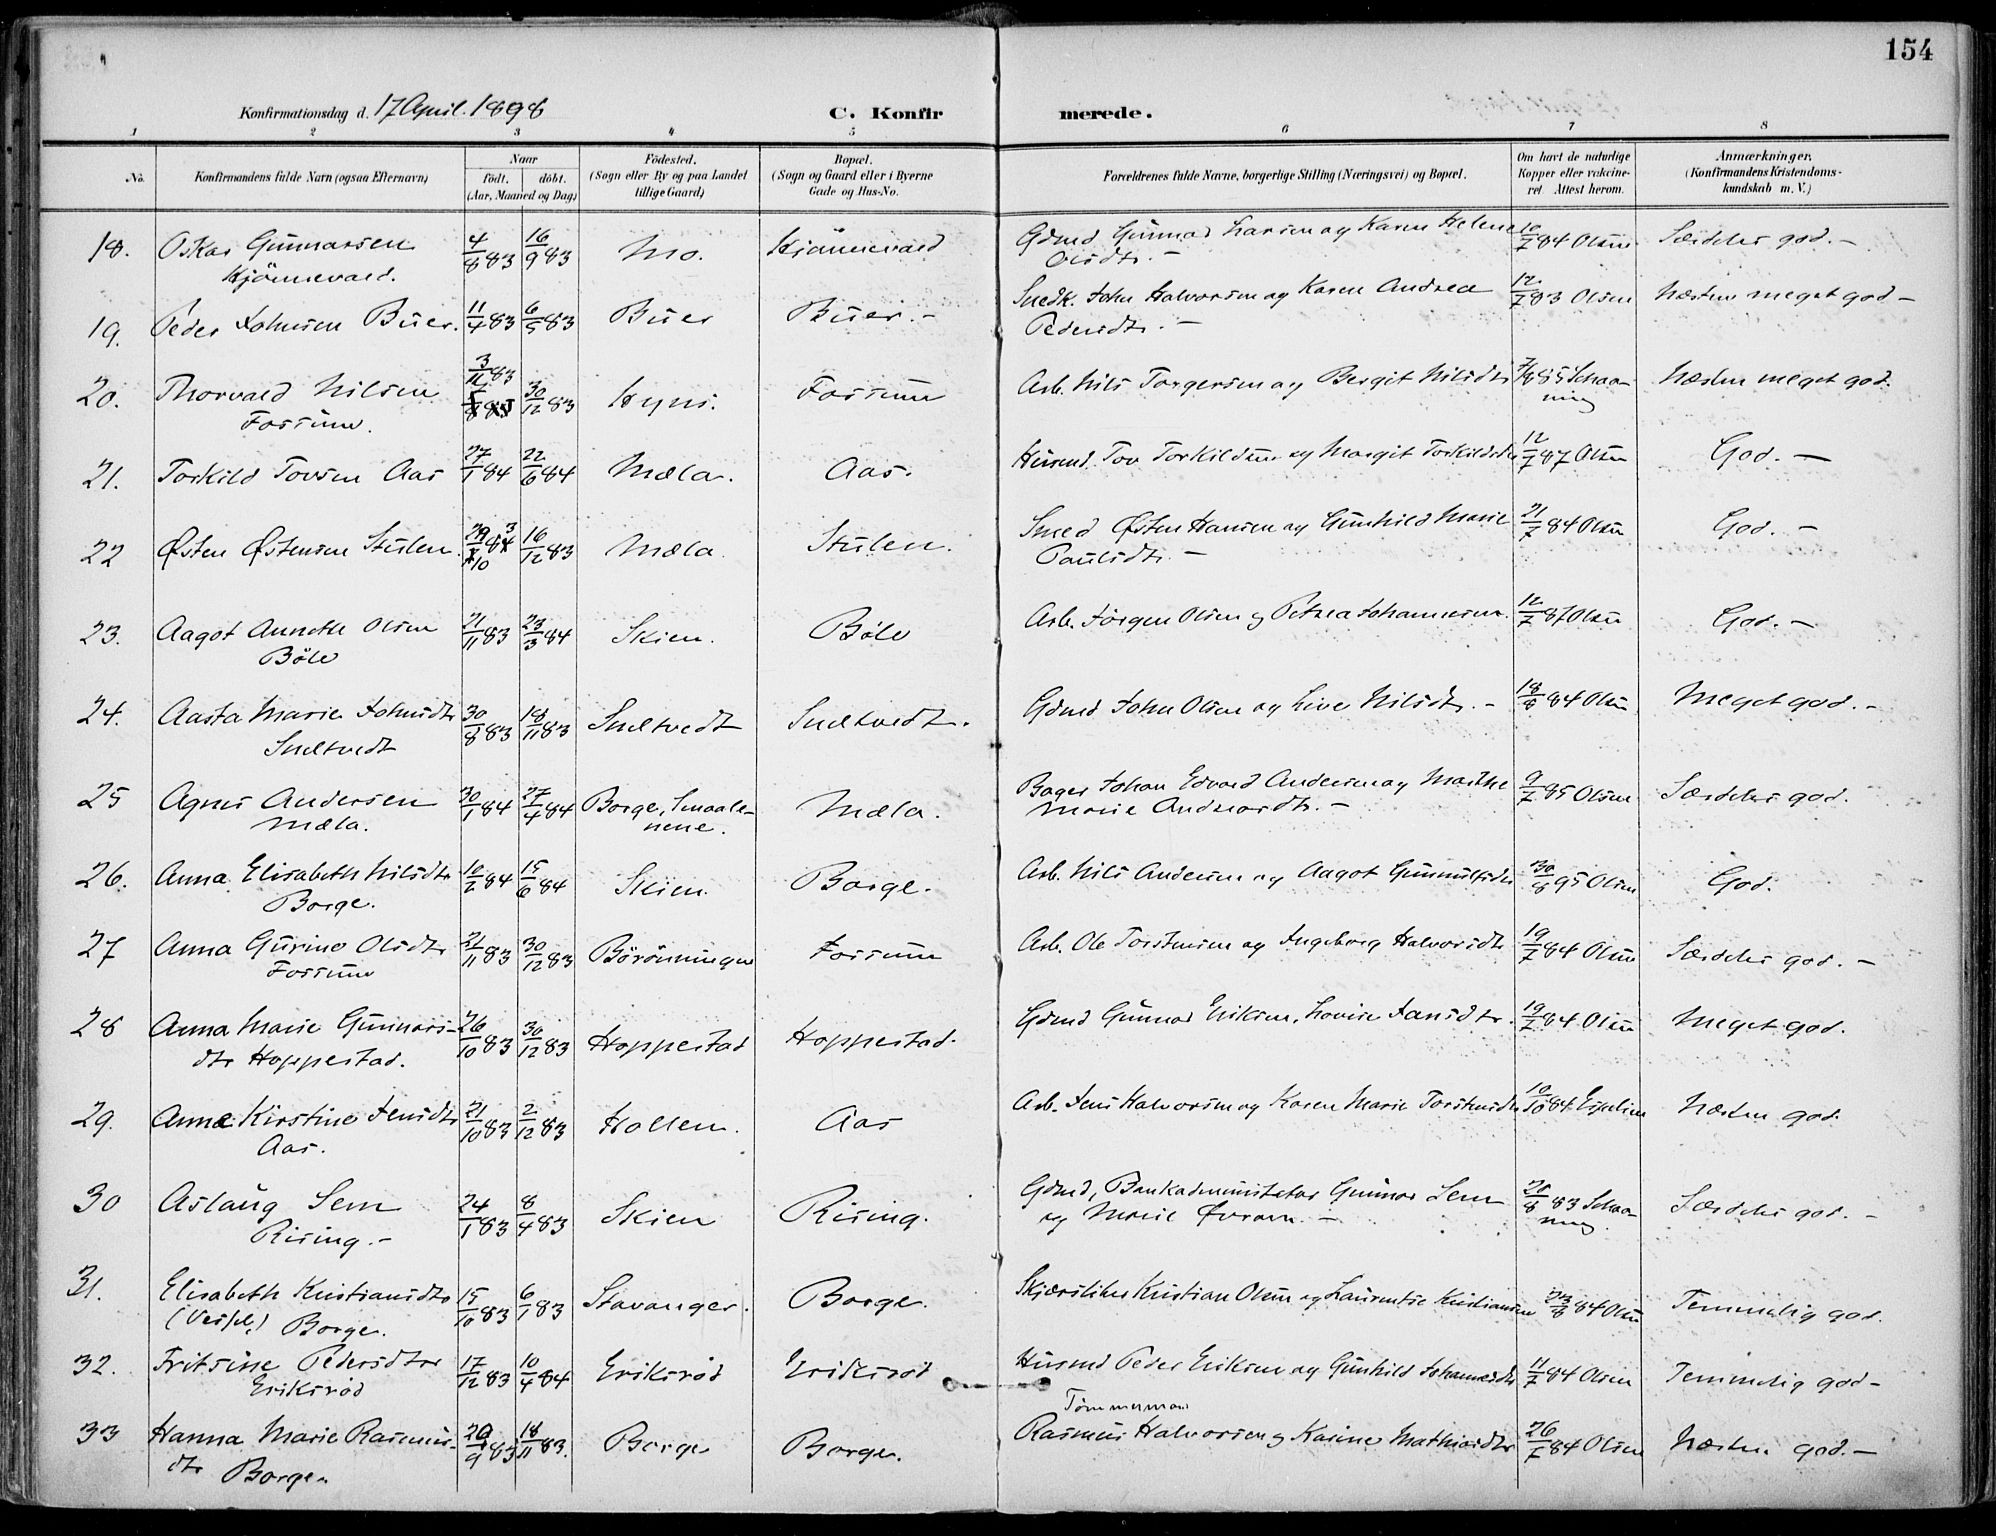 154
Konfirmationsdag d. 17 April. 1898 C. Konfirmerede.
1 2 3 4 5 6 7 8
No. Konfirmandens fulde Navn (ogsaa Efternavn) Naar født. døbt. (Aar, Maaned og Dag) Fødested. (Sogn eller By og paa Landet tillige Gaard) Bopæl. (Sogn og Gaard eller i Byerne Gade og Hus-No. Forældrenes fulde Navne, borgerlige Stilling (Næringsvei) og Bopæl. Om havt de naturlige Kopper eller vakcineret. Attest herom. Anmærkninger. (Konfirmandens Kristendomskundskab m. V.)
18. Oskar Gunnarsen 4/8 83 16/9 83 Mo. Kjönnevald Gdmd Gunnar Larsen og Karen Helene 10/7 84 Olsen Særdeles god. -
Kjönnevald. Olsdtr. -
19. Peder Johnsen Buer. 11/4 83 6/5 83 Buer Buer. - Snedk. John Halvorsen og Karen Andrea 12/7 83 Olsen Næsten meget god -
Pedersdtr. -
20. Thorvald Nilsen 3/11 83 30/12 83 Hyni. Fossum Arb. Nils Torgersen og Bergit Nilsdtr 7/8 85 Schaaning Næsten meget god.
Fossum.
21. Torkild Tovsen Aas 27/1 84 22/6 84 Mæla. Aas. Husmd. Tov Torkildsen og Margit Torkildsdtr 12/7 87 Olsen God. -
22 Østen Østensen Stulen. 29/10 83 16/12 83 Mæla Stulen. Smed Østen Hansen og Gunhild Marie 21/7 84 Olsen God. -
Paulsdtr. -
23. Aagot Annette Olsen 21/11 83 23/3 84 Skien. Böle Arb. Jörgen Olsen og Petrea Johannesen. 12/7 87 Olsen God. -
Böle
24. Aasta Marie Johnsdtr 30/8 83 18/11 83 Sneltvedt Sneltvedt. Gdmd John Olsen og Live Nilsdtr. - 18/8 84 Olsen Meget god. -
Sneltvedt
25 Agnes Andersen 30/1 84 27/4 84 Borge, Smaalenene. Mæla. Bager Johan Edvard Andersen og Marthe 9/7 85 Olsen Særdeles god.
Mæla. Marie Andreasdtr. -
26. Anna Elisabeth Nilsdtr 10/2 84 15/6 84 Skien. Borge. Arb. Nils Andersen og Aagot Gunnulfsdtr 30/8 95 Olsen God.
Borge.
27 Anna Gurine Olsdtr 21/11 83 30/12 83 Börönningen Fossum Arb. Ole Torstensen og Ingeborg Halvorsdtr 19/7 84 Olsen Særdeles god. -
Fossum
28 Anna Marie Gunnars- 26/10 83 30/12 83 Hoppestad Hoppestad. Gdmd Gunnar Eriksen, Lovise Jansdtr. 19/7 84 Olsen Meget god.
dtr Hoppestad.
29. Anne Kirstine Jensdtr 21/10 83 2/12 83 Hollen. Aas Arb. Jens Halvorsen og Karen Marie Torstensdtr 10/10 84 Espeline Næsten god.
Aas.
30 Aslaug Sem 24/1 83 8/4 83 Skien Rising. Gdmd, Bankadministrator Gunnar Sem 20/8 83 Schaaning Særdeles god. -
Rising. - og Marie Øvrom. -
31. Elisabeth Kristiansdtr 15/10 83 6/1 83 Stavanger. Borge. Skjærsliber Kristian Olsen og Laurentse Kristiansen 23/8 84 Olsen Temmelig god.
Borge.
32. Fritsine Pedersdtr 17/12 83 10/4 84 Eriksröd Eriksröd Husmd Peder Eriksen og Gunhild Johannesdtr 11/7 84 Olsen Temmelig god -
Eriksröd
Tömmermand
33 Hanna Marie Rasmus- 20/9 83 18/11 83. Borge Borge. Rasmus Halvorsen og Karine Mathiasdtr 26/5 84 Olsen Næsten god. -
dtr Borge.